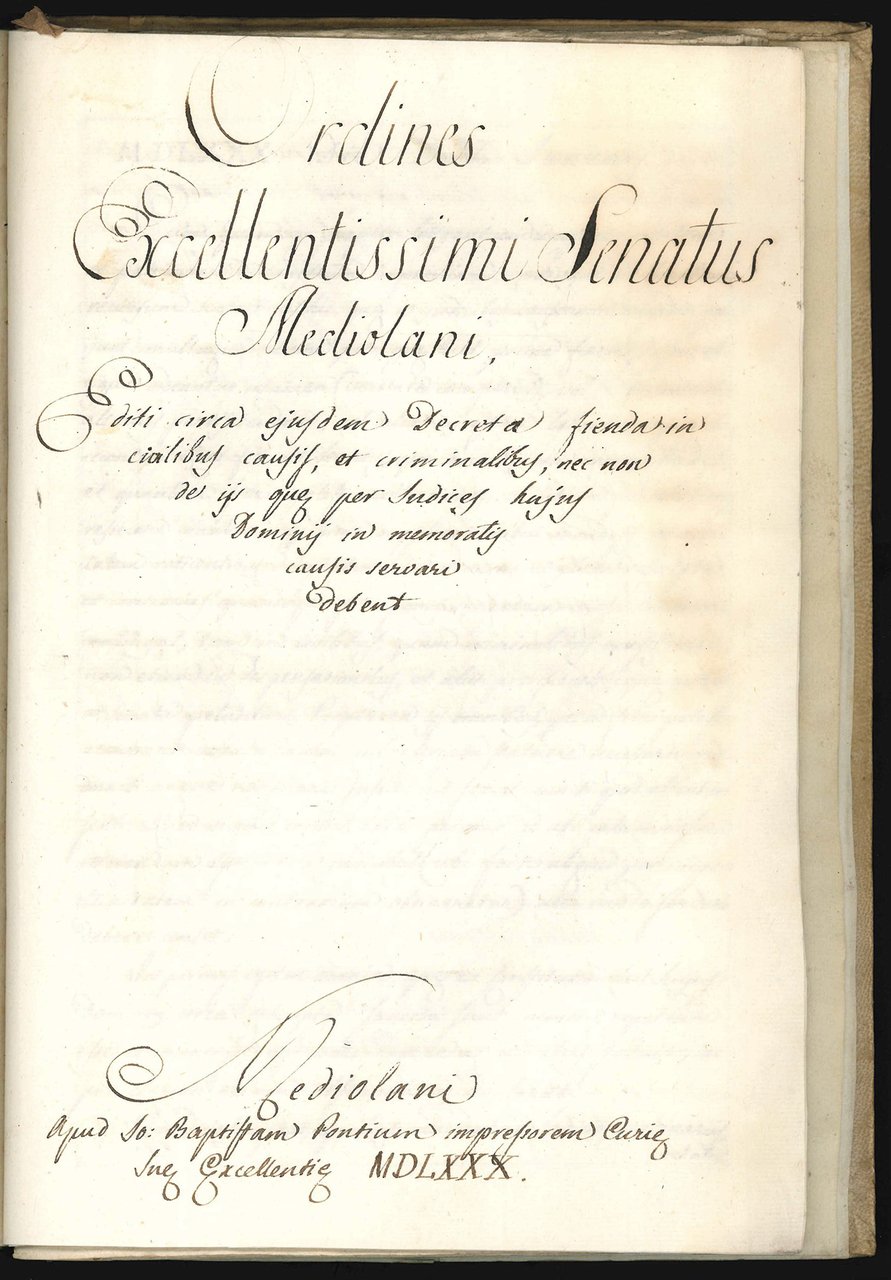 Ordines
Excellentissimi Senatus
Mediolani,
Editi circa ejusdem Decreta fienda in
civilibus causis, et criminalibus, nec non
de ijs quę per Judices hujus
Dominij in memoratis
causis servari
debent
Mediolani
Apud Jo: Baptistam Pontium impressorem Curię
Suę Excellentię MDLXXX.